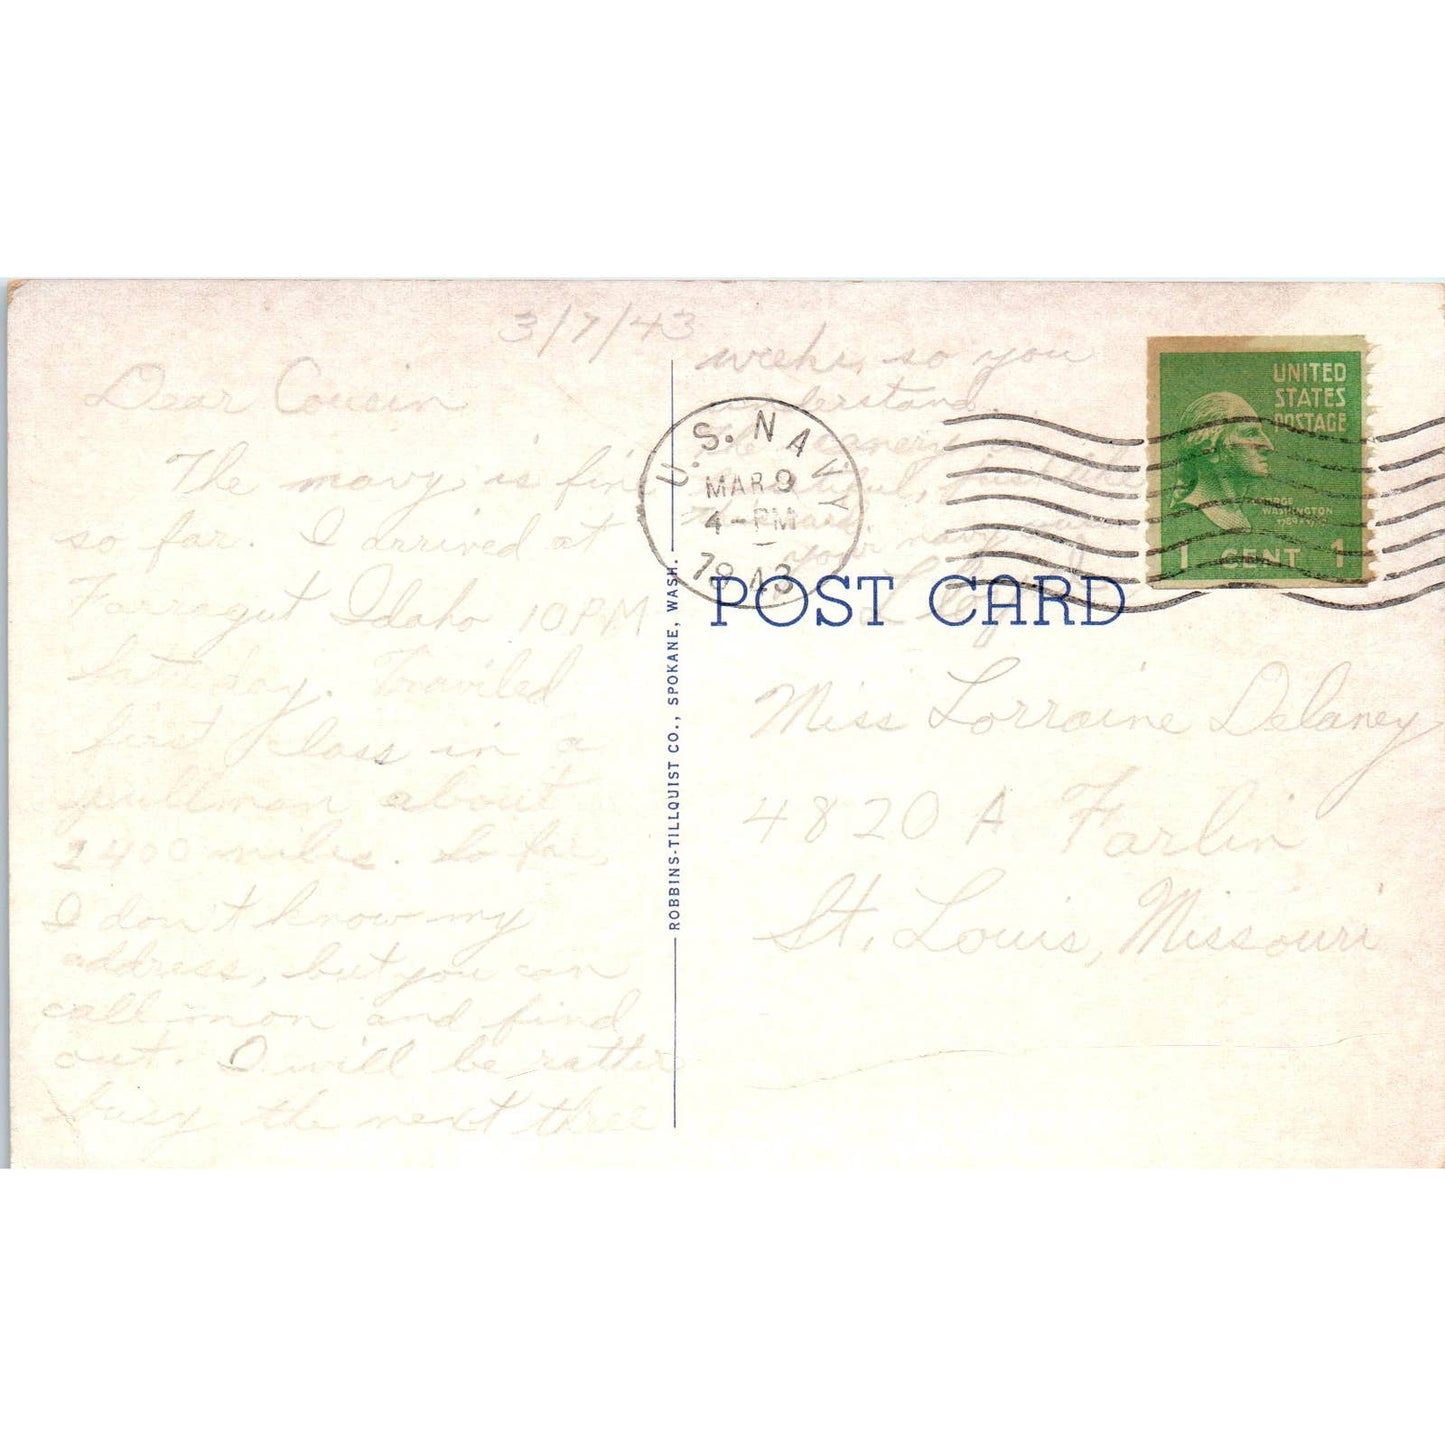 3/7/43
Dear Cousin
The navy is fine
so far. I arrived at
Farragut Idaho 10 PM
Saturday. Traviled
first class in a
pullman about
2400 miles. So far,
I don't know my
address, but you can
call mom and find
out. I will be rather
busy the next three
weeks, so you
understand.
The scenery is
beautiful, just like
your navy
U.S. NAVY
MAR 9
4-PM
1943
UNITED
STATES
POSTAGE
GEORGE
WASHINGTON
1789-1797
1 CENT 1
POST CARD
Miss Lorraine Delaney
4820 A Farlin
St. Louis, Missouri
ROBBINS-TILLQUIST CO., SPOKANE, WASH.